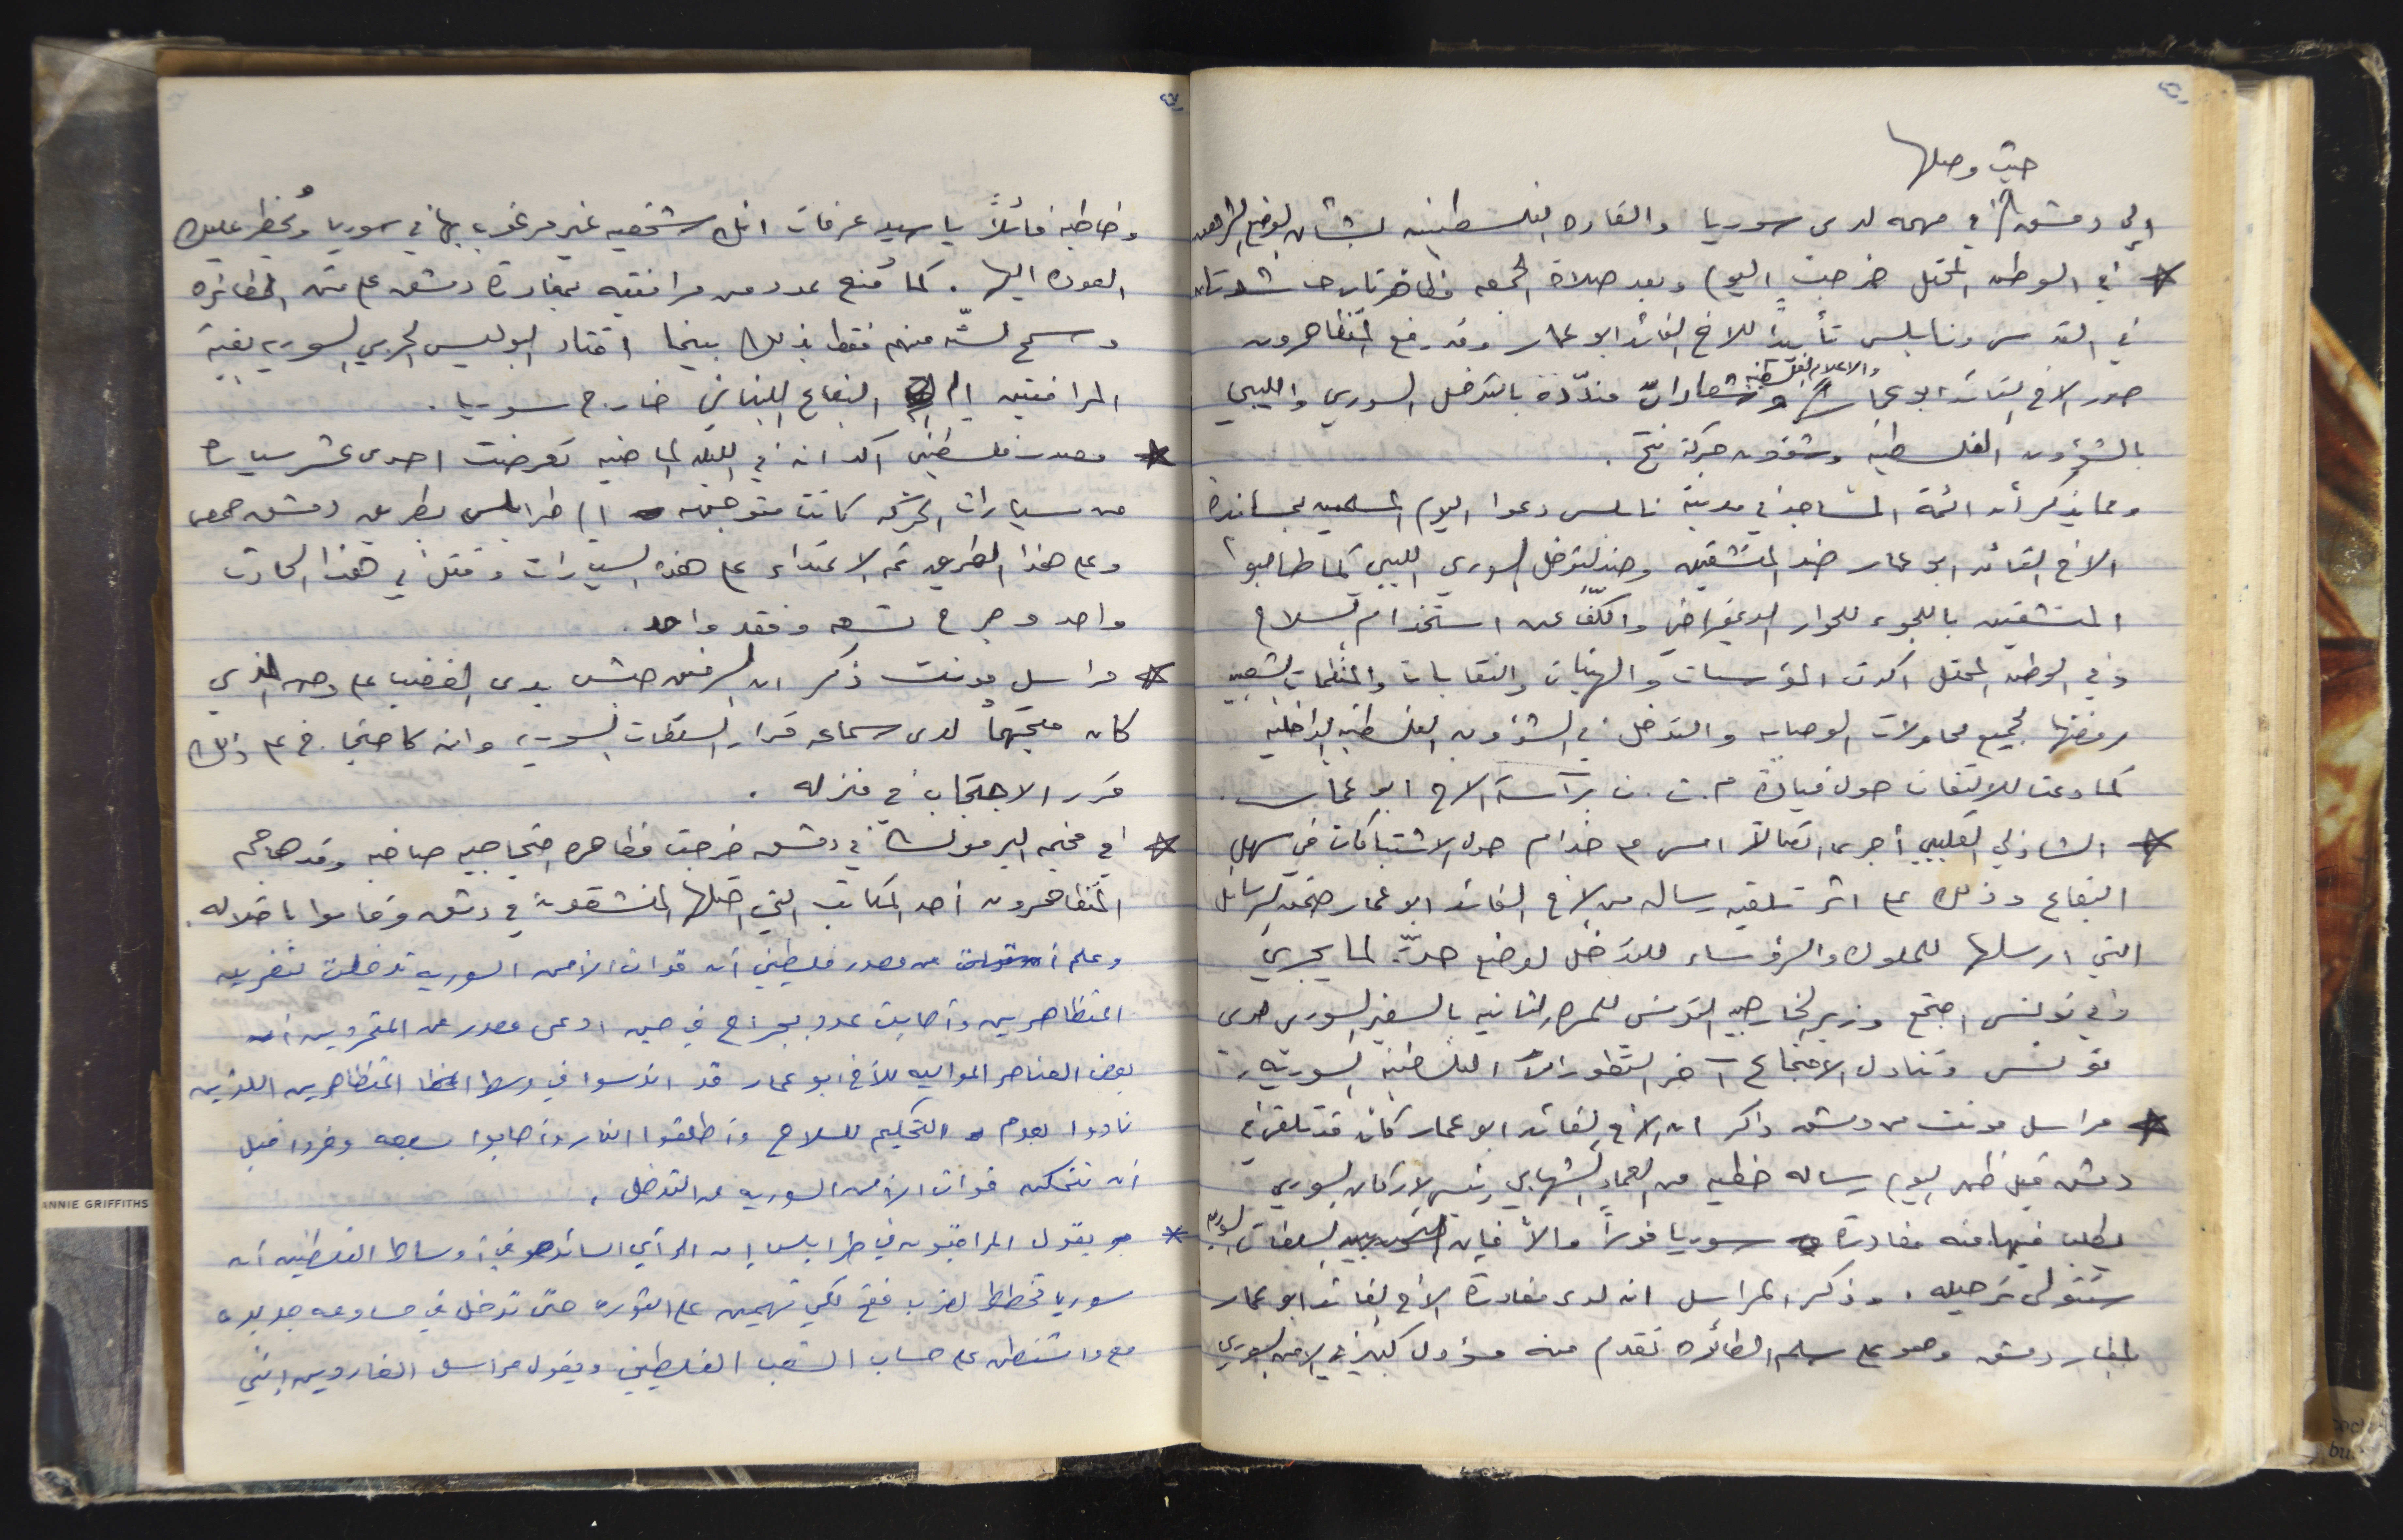 حيث وصلها
إلى دمشق في مهمه لدى سوريا والقاده الفلسطينيه بشأن الوضع الراهن
* في الوطن المحتل خرجت اليوم وبعد صلاة الجمعه مظاهرتان حاشدتان
في القدس ونابلس تأييداً للاخ القائد ابو عمار وقد رفع المتظاهرون
صور الاخ القائد ابو عمار والاعلام الفلسطينيه وشعارات مندّده بالتدخل السوري والليبي
بالشؤون الفلسطينيه وشؤون حركة فتح .
ومما يذكر أن ائمة المساجد في مدينة نابلس دعوا اليوم المسلمين لمساندة
الاخ القائد ابو عمار ضد المنشقين وضد التدخل السوري الليبي كما طالبوا
المنشقين باللجوء للحوار الديمقراطي والكفّ عن استخدام السلاح
وفي الوطن المحتل اكدت المؤسسات والهيئات والنقابات والمنظمات الشعبيه
رفضها لجميع محاولات الوصايه والتدخل في الشؤون الفلسطينيه الداخليه
كما دعت للالتفاف حول قيادة م.ت.ف برآسة الاخ ابو عمار .
* الشاذلي القليبي أجرى اتصالاً امس مع خدام حول الاشتباكات في سهل
البقاع وذلك على اثر تلقيه رساله من الاخ القائد ابو عمار ضمن الرسائل
التي ارسلها للملوك والرؤساء للتدخل لوضع حدّ لما يجري
وفي تونس اجتمع وزير الخارجيه التونسي للمره الثانيه بالسفير السوري لدى
تونس وتناول الاجتماع آخر التطورات الفلسطينيه السوريه
* مراسل مونت من دمشق ذكر ان الاخ القائد ابو عمار كان قد تلقى في
دمشق قبل ظهر اليوم رساله خطيه من العماد الشهابي رئيس الاركان السوري
يطلب فيها منه مغادرة سوريا فوراً والا فإن السلطات السوريه
ستتولى ترحيله . وذكر المراسل انه لدى مغادرة الاخ القائد ابو عمار
لمطار دمشق وهو على سلم الطائره تقدم منه مسؤول كبير في الامن السوري
وخاطبه قائلاً يا سيد عرفات انك شخصيه غير مرغوب بها في سوريا ويُحظر عليك
العوده اليها . كما مُنع عدد من مرافقيه بمغادرة دمشق على متن الطائره
وسمح لستّه منهم فقط بذلك بينما اقتاد البوليس الحربي السوري بقية
المرافقين الى البقاع اللبناني خارج سوريا .
* مصدر فلسطيني اكد انه في الليله الماضيه تعرضت احدى عشر سياره
من سيارات الحركه كانت متوجهه الى طرابلس بطريق دمشق حمص
وعلى هذا الطريق تم الاعتداء على هذه السيارات وقتل في هذا الحادث
واحد وجرح تسعه وفقد واحد .
* مراسل مونت ذكر ان الرفيق حبش بدى الغضب على وجهه الذي
كان متجهماً لدى سماعه قرار السلطات السوريه وانه كاحتجاج على ذلك
قرر الاحتجاب في منزله .
* في مخيم اليرموك في دمشق خرجت مظاهره احتجاجيه صاخبه وقد هاجم
المتظاهرون أحد المكاتب التي احتلها المنشقون في دمشق وقاموا باخلاله .
وعلم من مصدر فلسطيني أن قوات الأمن السوريه تدخلت لتفريق
المتظاهرين وأصابت عدد بجراح في حين ادعى مصدر عن المتمردين أن
بعض العناصر المواليه للأخ ابو عمار قد اندسوا في وسط المتظاهرين اللذين
نادوا بعدم التحكيم للسلاح وأطلقوا النار وأصابوا سبعه وفروا قبل
أن تتمكن قوات الأمن السوريه من التدخل .
* يقول المراقبون في طرابلس إن الرأي السائد في أوساط الفلسطينيين أن
سوريا تخطط لضرب فتح لكي تهيمن على الثوره حتى تدخل في مساومه جديده
مع واشنطن على حساب الشعب الفلسطيني ويقول مراسل الغارديين إنني
ANNIE GRIFFITHS